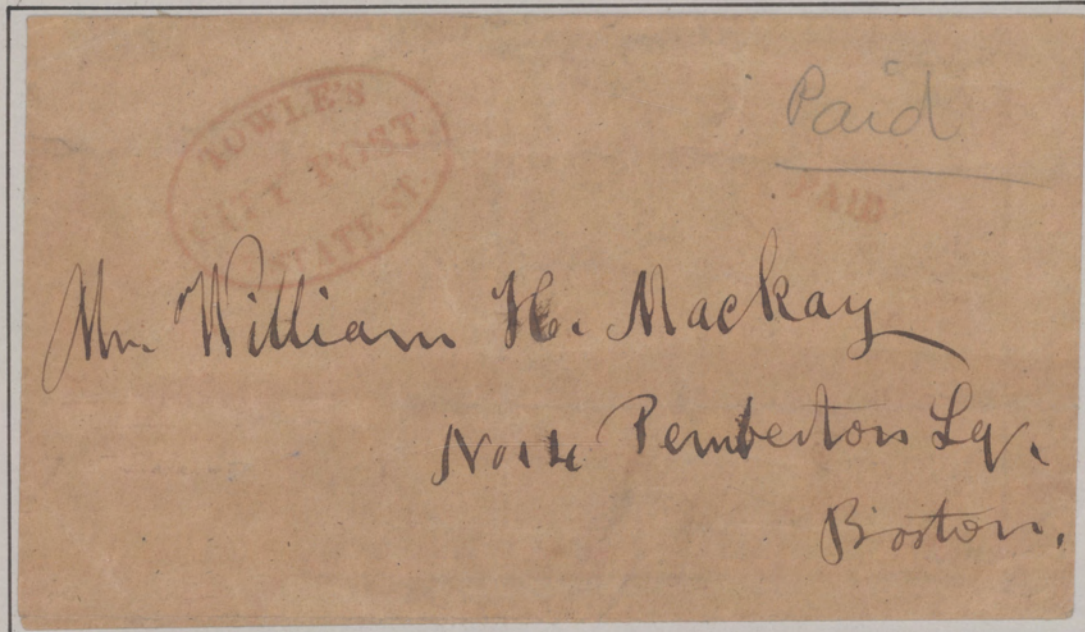 TOWLE'S
CITY POST.
STATE ST.
Paid
PAID
Mr. William H. Mackay
No 14 Pemberton Sq.
Boston.